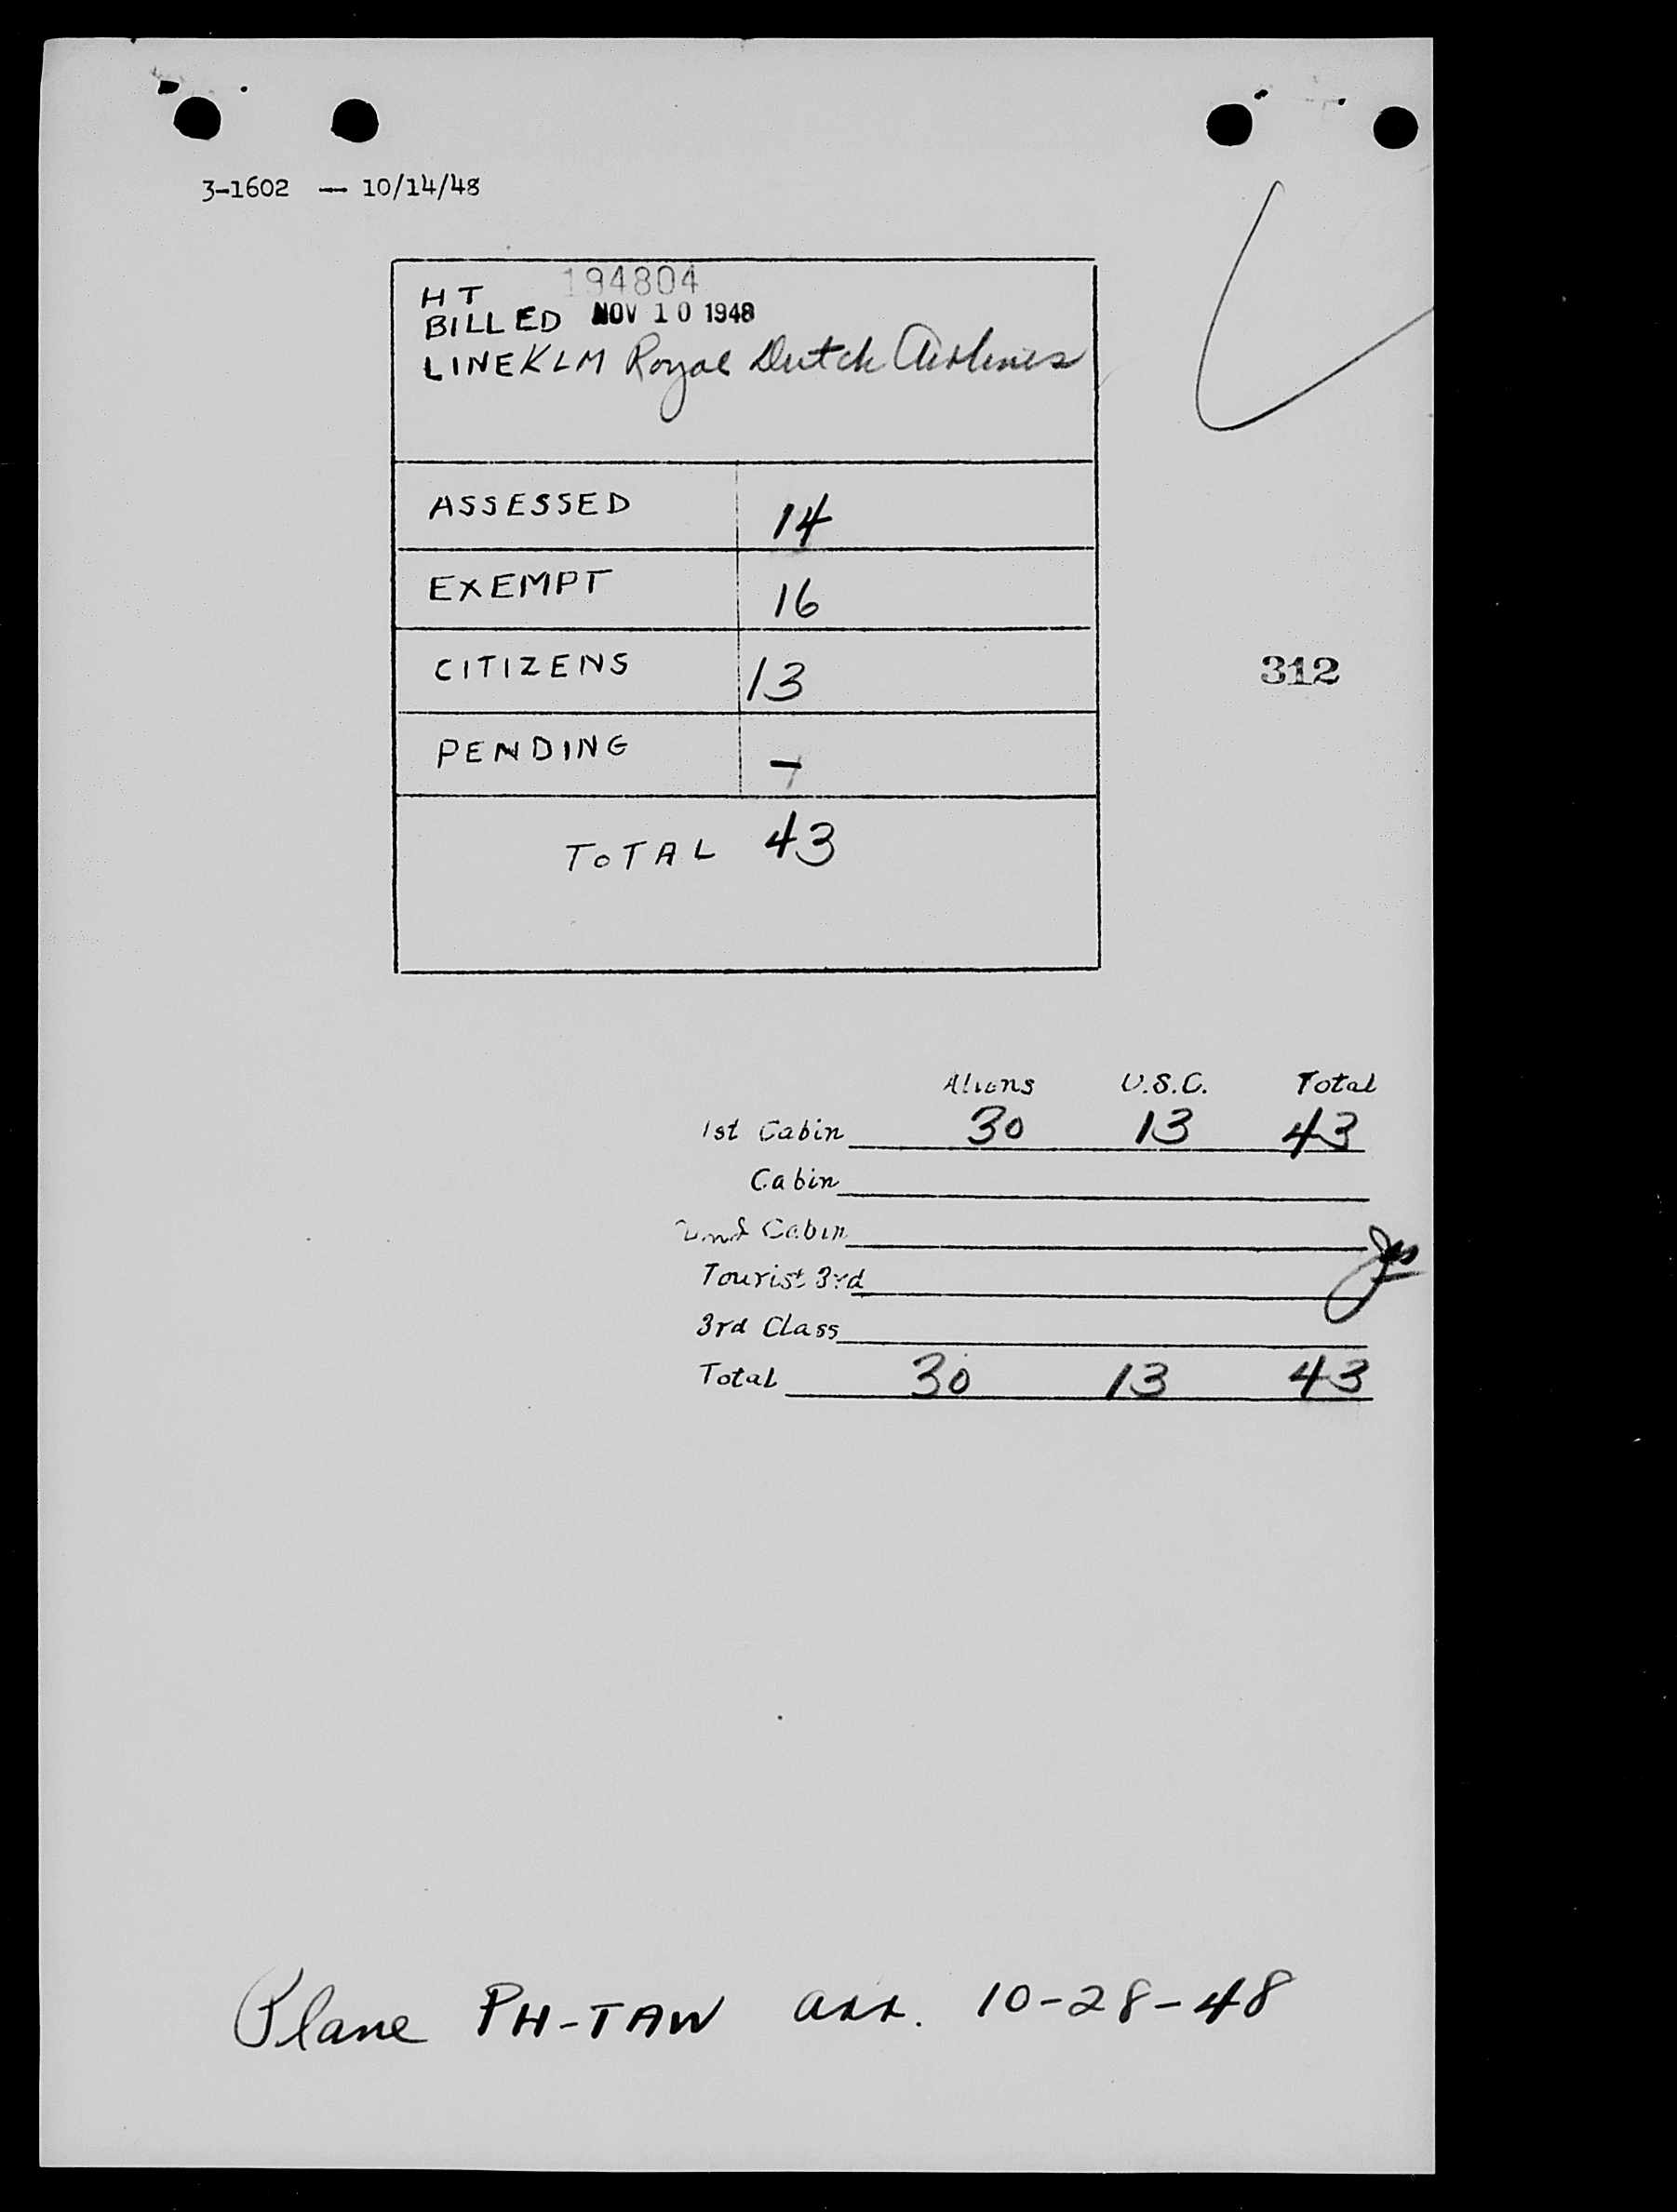 3-1602 — 10/14/48
HT 194804
BILLED NOV 10 1948
LINE KLM Royal Dutch Airlines
ASSESSED 14
EXEMPT 16
CITIZENS 13
312
PENDING -
TOTAL 43
Aliens U.S.C. Total
1st Cabin 30 13 43
Cabin
2nd Cabin
Tourist 3rd
3rd Class
Total 30 13 43
Plane PH-TAW arr. 10-28-48